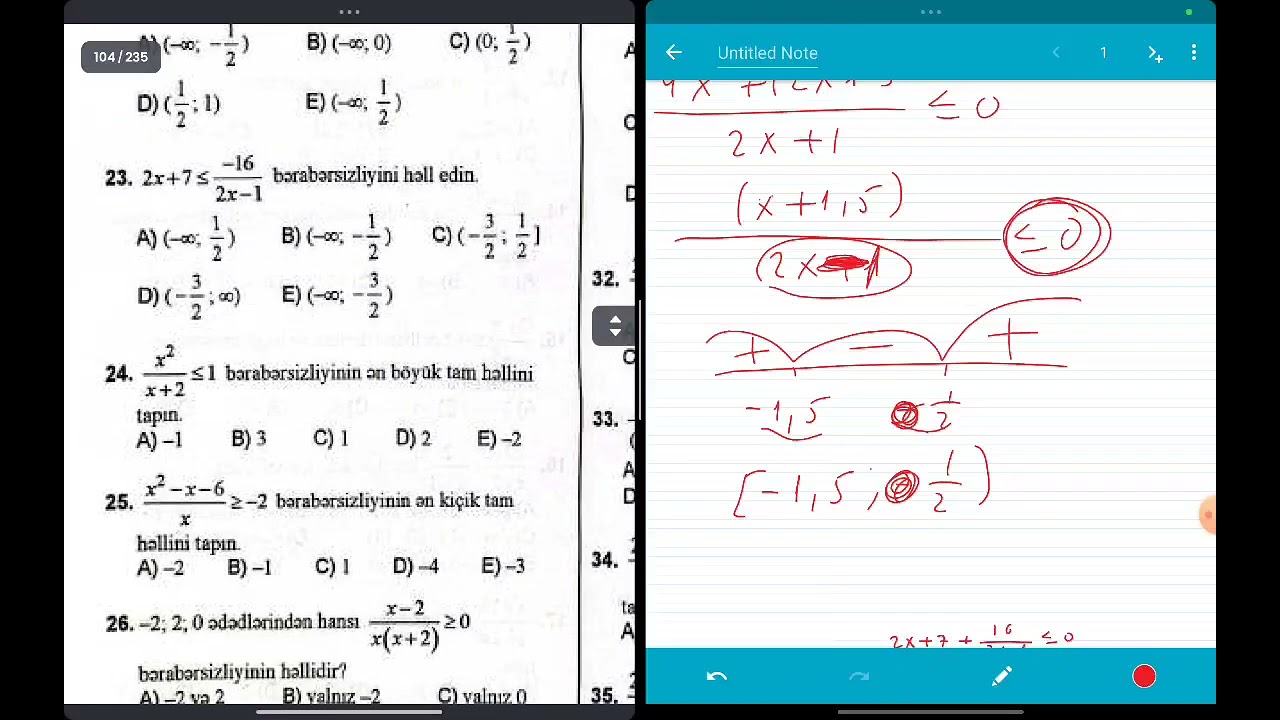 104 / 235
A) (–∞; –1/2) B) (–∞; 0) C) (0; 1/2)
D) (1/2; 1) E) (–∞; 1/2)
23. 2x+7 ≤ –16/(2x–1) bərabərsizliyini həll edin.
A) (–∞; 1/2) B) (–∞; –1/2) C) (–3/2; 1/2]
D) (–3/2; ∞) E) (–∞; –3/2)
24. x²/(x+2) ≤ 1 bərabərsizliyinin ən böyük tam həllini
tapın.
A) –1 B) 3 C) 1 D) 2 E) –2
25. (x²–x–6)/x ≥ –2 bərabərsizliyinin ən kiçik tam
həllini tapın.
A) –2 B) –1 C) 1 D) –4 E) –3
26. –2; 2; 0 ədədlərindən hansı (x–2)/(x(x+2)) ≥ 0
bərabərsizliyinin həllidir?
A) –2 və 2 B) yalnız –2 C) yalnız 0
32.
33.
34.
35.
Untitled Note
1
≤ 0
2x+1
(x+1,5)
≤ 0
+ – +
–1,5 1/2
[–1,5; 1/2)
2x+7 + 16 ≤ 0